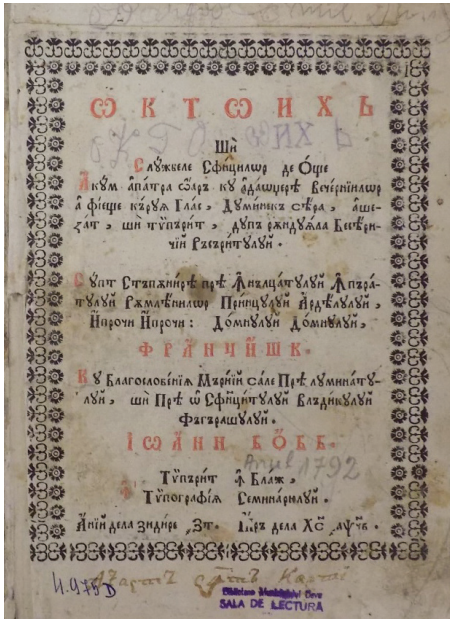 Ѡ К Т Ѡ И Х Ь
К Т О Ѡ И Х Ь
Шѝ
Слꙋжбеле Сфи́ցилѡр де Ѻ́ще
Акꙋ́м а҆патра ѻ҆́аръ кꙋ а҆да́ѡџерѣ Вече́рнїилѡр
ꙟ҆ фїе́ще ка́рꙋѧ Глас, Дꙋми́некъ сѣ́ра, а҆ше-
за́т, шѝ тѷпъри́т, дꙋ́пъ рѫндꙋѧ́ла Бесѣ́ри-
чїй Ръсъри́тꙋлꙋй.
Сꙋпт Стъпѫни́рѣ прѣ ꙟ҆нълца́тꙋлꙋй ꙟ҆пъра́-
тꙋлꙋй Рѫмлѣ́нилѡр Принцꙋлꙋй Ардѣ́лꙋлꙋй,
И҆прочи И҆прочи: До́мнꙋлꙋй До́мнꙋлꙋй,
Ф Р А Н Ч И Ш К.
Кꙋ Благослове́нїѧ Мъри́їй са́ле Прѣ лꙋмина́тꙋ-
лꙋй, шѝ Прѣ ѡ҆ Сфинци́тꙋлꙋй Влъди́кꙋлꙋй
Фъгъра́шꙋлꙋй.
І Ѡ А Н Н Б О Б Б.
Anul 1792
Тѷпъри́т ꙟ҆ Блаж,
ꙟ҆ Тѷпогра́фїѧ Семина́рїꙋлꙋй.
А҆нїй дела зиди́ре ҂зт. І҆́ръ дела Хс҃ ҂аѱч҃в.
4.975 D
Biblioteca Deva
SALA DE LECTURĂ